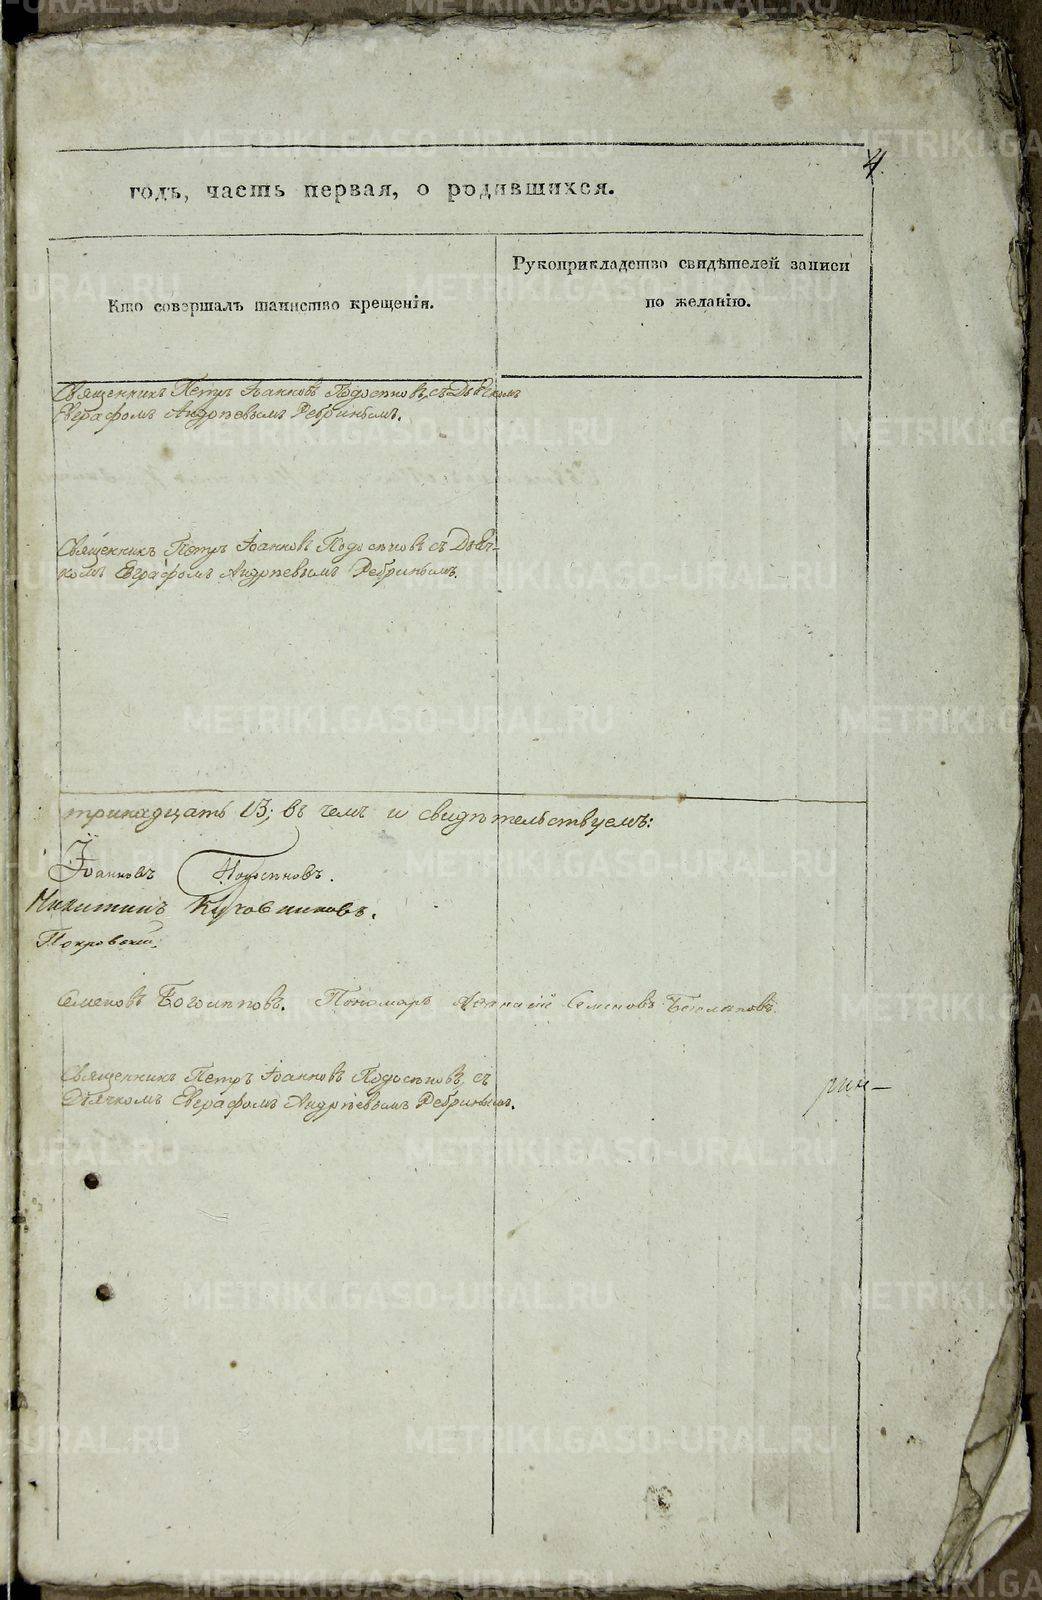 4.
годъ, часть первая, о родившихся.
Кто совершалъ таинство крещенія.
Рукоприкладство свидѣтелей записи
по желанію.
Священникъ Петръ Іанновъ Подосеновъ, съ Дьячкомъ
Евграфомъ Андреевымъ Ребринымъ.
Священникъ Петръ Іанновъ Подосеновъ съ Дьяч-
комъ Евграфомъ Андреевымъ Ребринымъ.
тринадцать 13; въ чемъ и свидѣтельствуемъ:
Іоанновъ Подосеновъ.
Никитинъ
Покровскій.
Семеновъ Богомоловъ. Пономарь Семеновъ
Священникъ Петръ Іанновъ Подосеновъ, съ
Дьячкомъ Евграфомъ Андреевымъ Ребринымъ.
METRIKI.GASO-URAL.RU